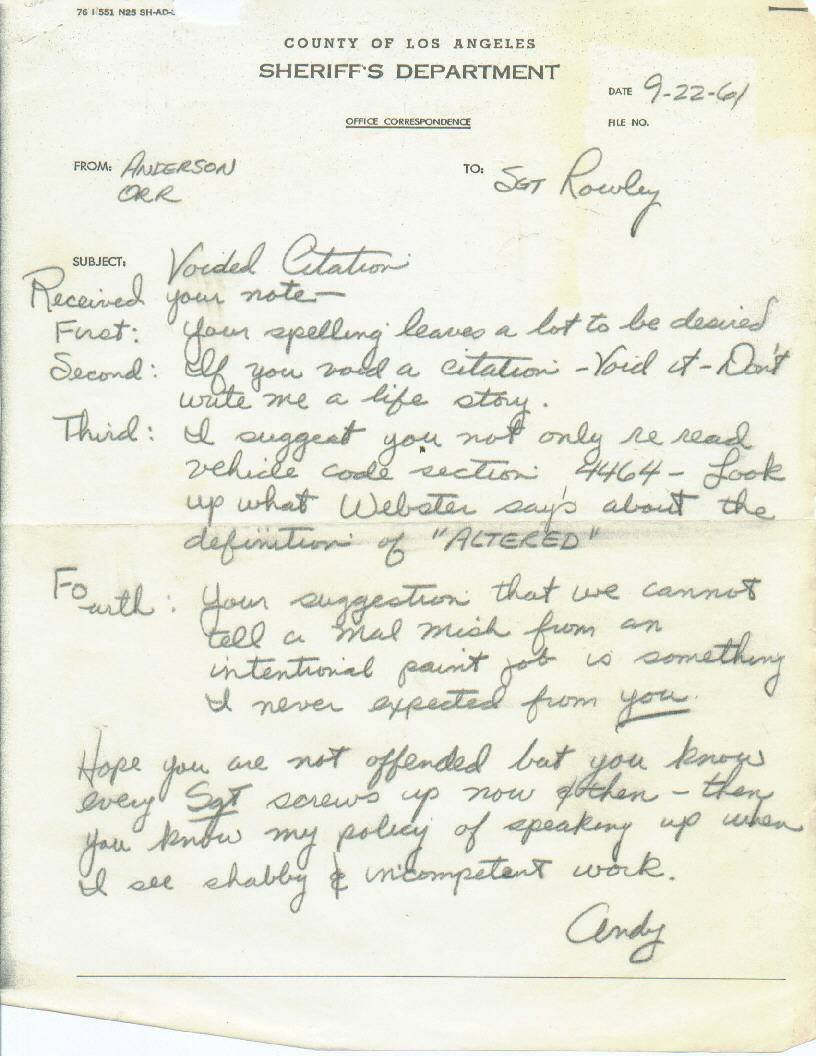 COUNTY OF LOS ANGELES
SHERIFF'S DEPARTMENT
DATE 9-22-61
OFFICE CORRESPONDENCE
FILE NO.
FROM: ANDERSON TO: SGT Rowley
ORR
SUBJECT: Voided Citation
Received your note—
First: Your spelling leaves a lot to be desired
Second: If you void a citation - Void it - Don't
write me a life story.
Third: I suggest you not only re read
vehicle code section 4464 - Look
up what Webster says about the
definition of "ALTERED"
Fourth: Your suggestion that we cannot
tell a Mal Mish from an
intentional paint job is something
I never expected from you.
Hope you are not offended but you know
every Sgt screws up now & then - then
you know my policy of speaking up when
I see shabby & incompetent work.
Andy